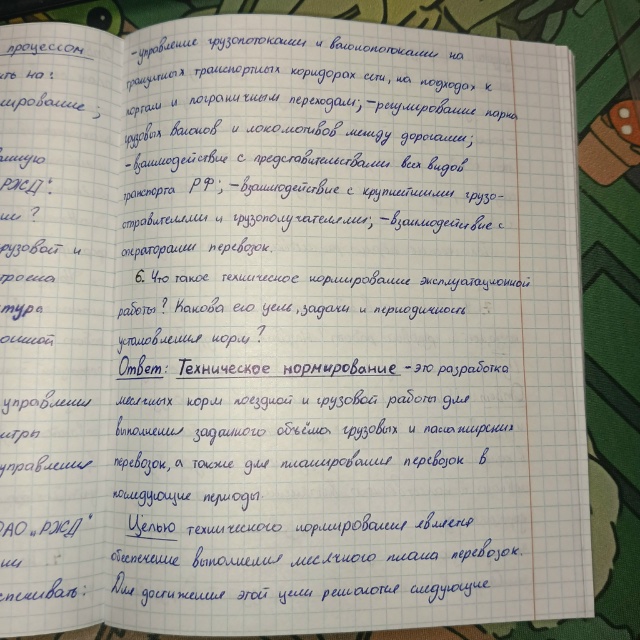 процессом
ить на:
мирование;
РЖД".
ии?
грузовой и
троена
тура
онной
управления
нтры
управления
ОАО „РЖД"
ии
спечивать:
-управление грузопотоками и вагонопотоками на
транзитных транспортных коридорах сети, на подходах к
портам и пограничным переходам; -регулирование парка
грузовых вагонов и локомотивов между дорогами;
-взаимодействие с представительствами всех видов
транспорта РФ; -взаимодействие с крупнейшими грузо-
отправителями и грузополучателями; -взаимодействие с
операторами перевозок.
6. Что такое техническое нормирование эксплуатационной
работы? Какова его цель, задачи и периодичность
установления норм?
Ответ: Техническое нормирование - это разработка
месячных норм поездной и грузовой работы для
выполнения заданного объёма грузовых и пассажирских
перевозок, а также для планирования перевозок в
последующие периоды.
Целью технического нормирования является
обеспечение выполнения месячного плана перевозок.
Для достижения этой цели решаются следующие